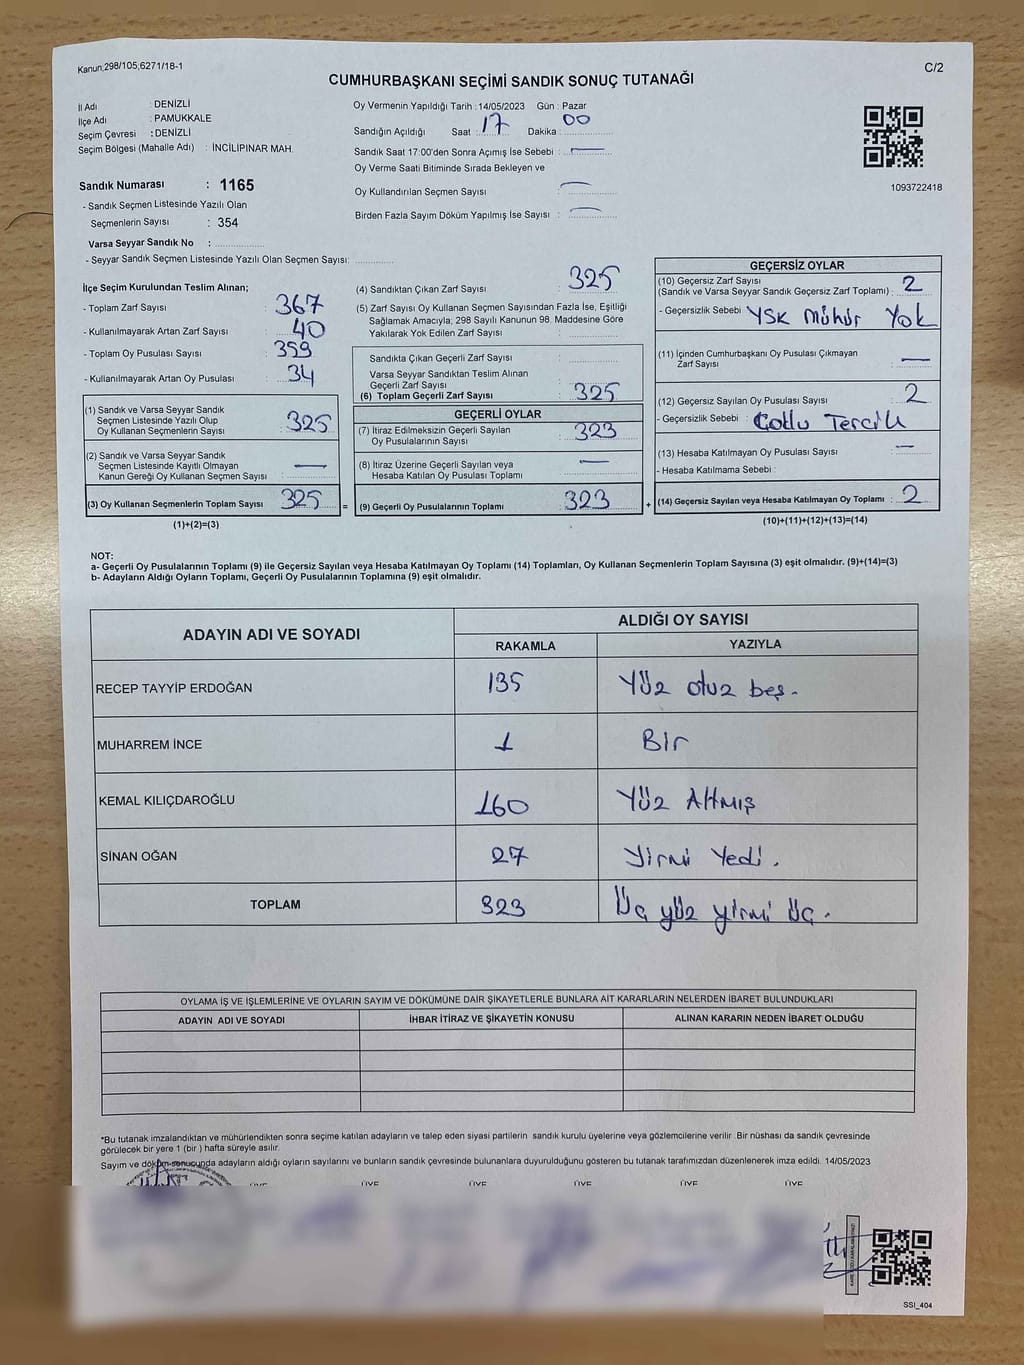 Kanun;298/105;6271/18-1
C/2
CUMHURBAŞKANI SEÇİMİ SANDIK SONUÇ TUTANAĞI
İl Adı : DENİZLİ
İlçe Adı : PAMUKKALE
Seçim Çevresi : DENİZLİ
Seçim Bölgesi (Mahalle Adı) : İNCİLİPINAR MAH.
Sandık Numarası : 1165
- Sandık Seçmen Listesinde Yazılı Olan
Seçmenlerin Sayısı : 354
Varsa Seyyar Sandık No :
- Seyyar Sandık Seçmen Listesinde Yazılı Olan Seçmen Sayısı:
Oy Vermenin Yapıldığı Tarih : 14/05/2023 Gün : Pazar
Sandığın Açıldığı Saat : 17 Dakika : 00
Sandık Saat 17:00'den Sonra Açımış İse Sebebi : —
Oy Verme Saati Bitiminde Sırada Bekleyen ve
Oy Kullandırılan Seçmen Sayısı : —
Birden Fazla Sayım Döküm Yapılmış İse Sayısı : —
1093722418
İlçe Seçim Kurulundan Teslim Alınan;
- Toplam Zarf Sayısı : 367
- Kullanılmayarak Artan Zarf Sayısı : 40
- Toplam Oy Pusulası Sayısı : 359
- Kullanılmayarak Artan Oy Pusulası : 34
(1) Sandık ve Varsa Seyyar Sandık
Seçmen Listesinde Yazılı Olup
Oy Kullanan Seçmenlerin Sayısı : 325
(2) Sandık ve Varsa Seyyar Sandık
Seçmen Listesinde Kayıtlı Olmayan
Kanun Gereği Oy Kullanan Seçmen Sayısı : —
(3) Oy Kullanan Seçmenlerin Toplam Sayısı : 325 =
(1)+(2)=(3)
(4) Sandıktan Çıkan Zarf Sayısı : 325
(5) Zarf Sayısı Oy Kullanan Seçmen Sayısından Fazla İse, Eşitliği
Sağlamak Amacıyla; 298 Sayılı Kanunun 98. Maddesine Göre
Yakılarak Yok Edilen Zarf Sayısı :
Sandıkta Çıkan Geçerli Zarf Sayısı :
Varsa Seyyar Sandıktan Teslim Alınan
Geçerli Zarf Sayısı :
(6) Toplam Geçerli Zarf Sayısı : 325
GEÇERLİ OYLAR
(7) İtiraz Edilmeksizin Geçerli Sayılan
Oy Pusulalarının Sayısı : 323
(8) İtiraz Üzerine Geçerli Sayılan veya
Hesaba Katılan Oy Pusulası Toplamı : —
(9) Geçerli Oy Pusulalarının Toplamı : 323 +
GEÇERSİZ OYLAR
(10) Geçersiz Zarf Sayısı
(Sandık ve Varsa Seyyar Sandık Geçersiz Zarf Toplamı) : 2
- Geçersizlik Sebebi : YSK Mühür Yok
(11) İçinden Cumhurbaşkanı Oy Pusulası Çıkmayan
Zarf Sayısı : —
(12) Geçersiz Sayılan Oy Pusulası Sayısı : 2
- Geçersizlik Sebebi : Çoklu Tercih
(13) Hesaba Katılmayan Oy Pusulası Sayısı : —
- Hesaba Katılmama Sebebi :
(14) Geçersiz Sayılan veya Hesaba Katılmayan Oy Toplamı : 2
(10)+(11)+(12)+(13)=(14)
NOT:
a- Geçerli Oy Pusulalarının Toplamı (9) ile Geçersiz Sayılan veya Hesaba Katılmayan Oy Toplamı (14) Toplamları, Oy Kullanan Seçmenlerin Toplam Sayısına (3) eşit olmalıdır. (9)+(14)=(3)
b- Adayların Aldığı Oyların Toplamı, Geçerli Oy Pusulalarının Toplamına (9) eşit olmalıdır.
ADAYIN ADI VE SOYADI
ALDIĞI OY SAYISI
RAKAMLA YAZIYLA
RECEP TAYYİP ERDOĞAN 135 Yüz otuz beş.
MUHARREM İNCE 1 Bir
KEMAL KILIÇDAROĞLU 160 Yüz Altmış
SİNAN OĞAN 27 Yirmi Yedi.
TOPLAM 323 Üç yüz yirmi üç.
OYLAMA İŞ VE İŞLEMLERİNE VE OYLARIN SAYIM VE DÖKÜMÜNE DAİR ŞİKAYETLERLE BUNLARA AİT KARARLARIN NELERDEN İBARET BULUNDUKLARI
ADAYIN ADI VE SOYADI İHBAR İTİRAZ VE ŞİKAYETİN KONUSU ALINAN KARARIN NEDEN İBARET OLDUĞU
*Bu tutanak imzalandıktan ve mühürlendikten sonra seçime katılan adayların ve talep eden siyasi partilerin sandık kurulu üyelerine veya gözlemcilerine verilir. Bir nüshası da sandık çevresinde
görülecek bir yere 1 (bir ) hafta süreyle asılır.
Sayım ve döküm sonucunda adayların aldığı oyların sayılarını ve bunların sandık çevresinde bulunanlara duyurulduğunu gösteren bu tutanak tarafımızdan düzenlenerek imza edildi. 14/05/2023
ÜYE ÜYE ÜYE ÜYE ÜYE ÜYE
SSI_404